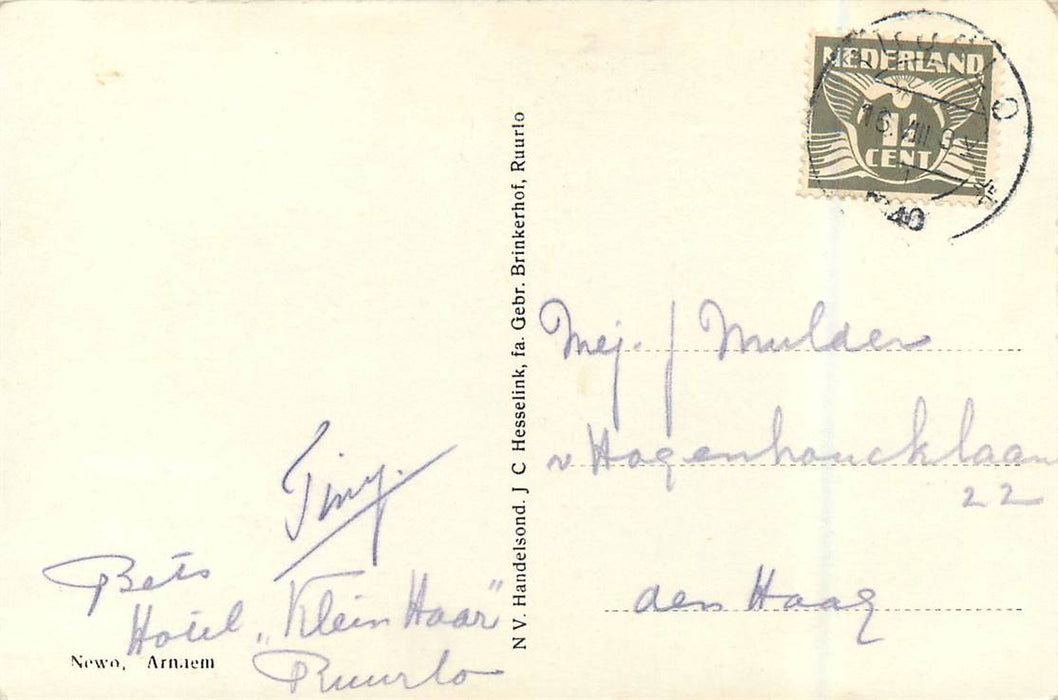 NEDERLAND
1½
CENT
16.VIII
40
N V. Handelsond. J C Hesselink, fa. Gebr. Brinkerhof, Ruurlo
Mej. J Mulder
v Hogenhoucklaan
22
den Haag
Tiny.
Bets
Hotel „Klein Haar"
Ruurlo
Newo, Arnhem